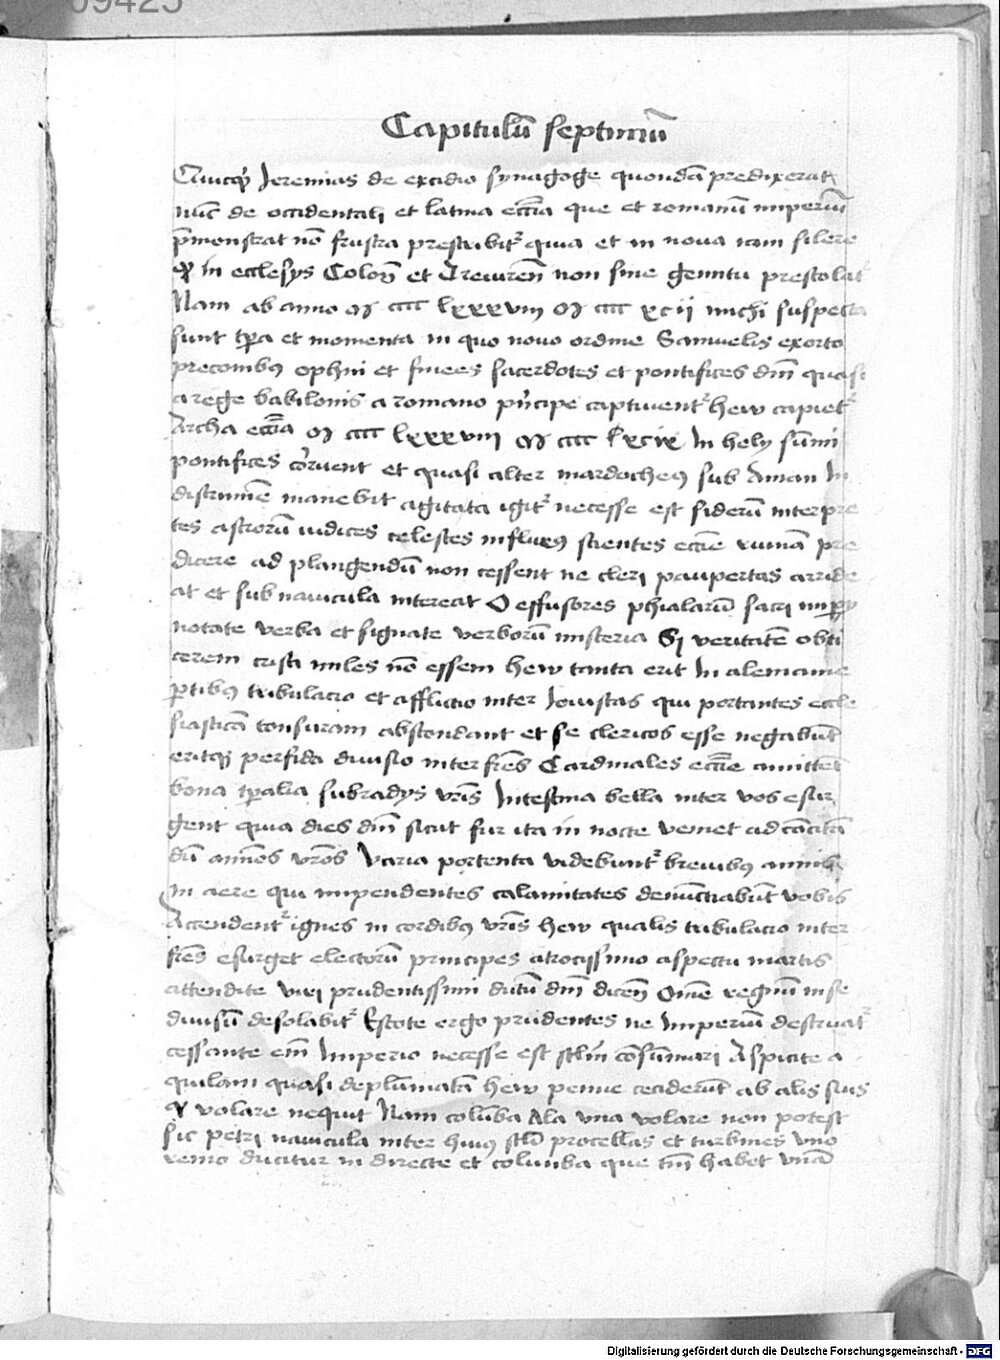 09425
Capitulū septimū
Quicqd Jeremias de excidio synagoge quondā predixerat
nūc de occidentali et latina eccīa que et romanū imperiū
pmonstrat nō frustra prescribitr quia et in noua iam silere
in ecclesijs Coloñ et Treuireñ non sine gemitu prestolat
Nam ab anno M cccc lxxxviij M cccc xcij michi suspecta
sunt tpa et momenta in quo nouo ordine Samuelis exorto
preconibꝰ ophni et finees sacerdotes et pontifices dñi quasi
a rege babilonis a romano pncipe captiuentr hew capietr
Archa eccīa M cccc lxxxviij M cccc lxcix In hely sūmi
pontifices cōruent et quasi alter mardocheꝰ sub Aman In
discrimē manebit agitata igitr necesse est siderū interpre
tes astrorū iudices celestes influxꝰ scientes eccīe ruinā pre
dicere ad plangendū non cessent ne cleri paupertas arride
at et sub nauicula intereat O effusores phialarū sacri impij
notate verba et signate verborū misteria Si veritatē obti
cerem cristi miles nō essem hew tanta erit In alemanie
ptibꝰ tribulacio et afflictio inter Jouistas qui portantes eccle
siasticā tonsuram abscondant et se clericos esse negabūt
eritqꝫ perfida diuisio inter frēs Cardinales eccīe amittent
bona tpalia sub radijs vrīs Intestina bella inter vos esur
gent quia dies dñi sicut fur ita in nocte veniet ad cācitā
dū annos vrōs Varia portenta videbuntr breuibꝰ annis
in aere qui impendentes calamitates denūctiabūt vobis
Accendentr ignes in cordibꝰ vrīs hew qualis tribulacio inter
frēs esurget electorū principes atrocissimo aspectu martis
attendite viri prudentissimi dictū dñi diceñ Omē regnū in se
diuisū desolabitr Estote ergo prudentes ne Imperiū destruatr
cessante em Imperio necesse est sclm cōsūmari Aspicite a
quilam quasi deplūmatā hew penne ceciderūt ab alis suis
volare nequit Nam colūba Ala vna volare non potest
sic petri nauicula inter huiꝰ scli procellas et turbines vno
remo ducitur in directe et columba que tm habet vnā
Digitalisierung gefördert durch die Deutsche Forschungsgemeinschaft - DFG